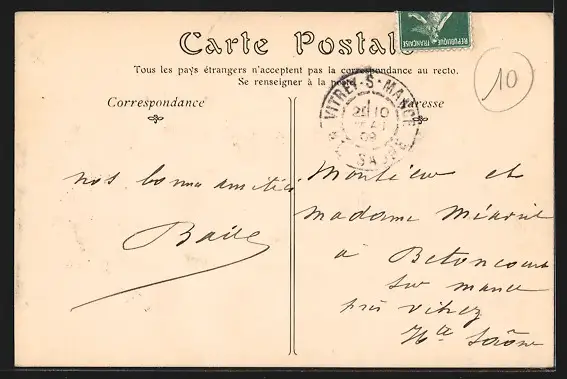 Carte Postale
REPUBLIQUE FRANÇAISE
Tous les pays étrangers n'acceptent pas la correspondance au recto.
Se renseigner à la poste.
Correspondance
Adresse
VITREY-S-MANCE
Hte SAONE
10
nos bonnes amitiés
Monsieur et
madame
à Betoncourt
sur mance
près vitrey
Hte Saône